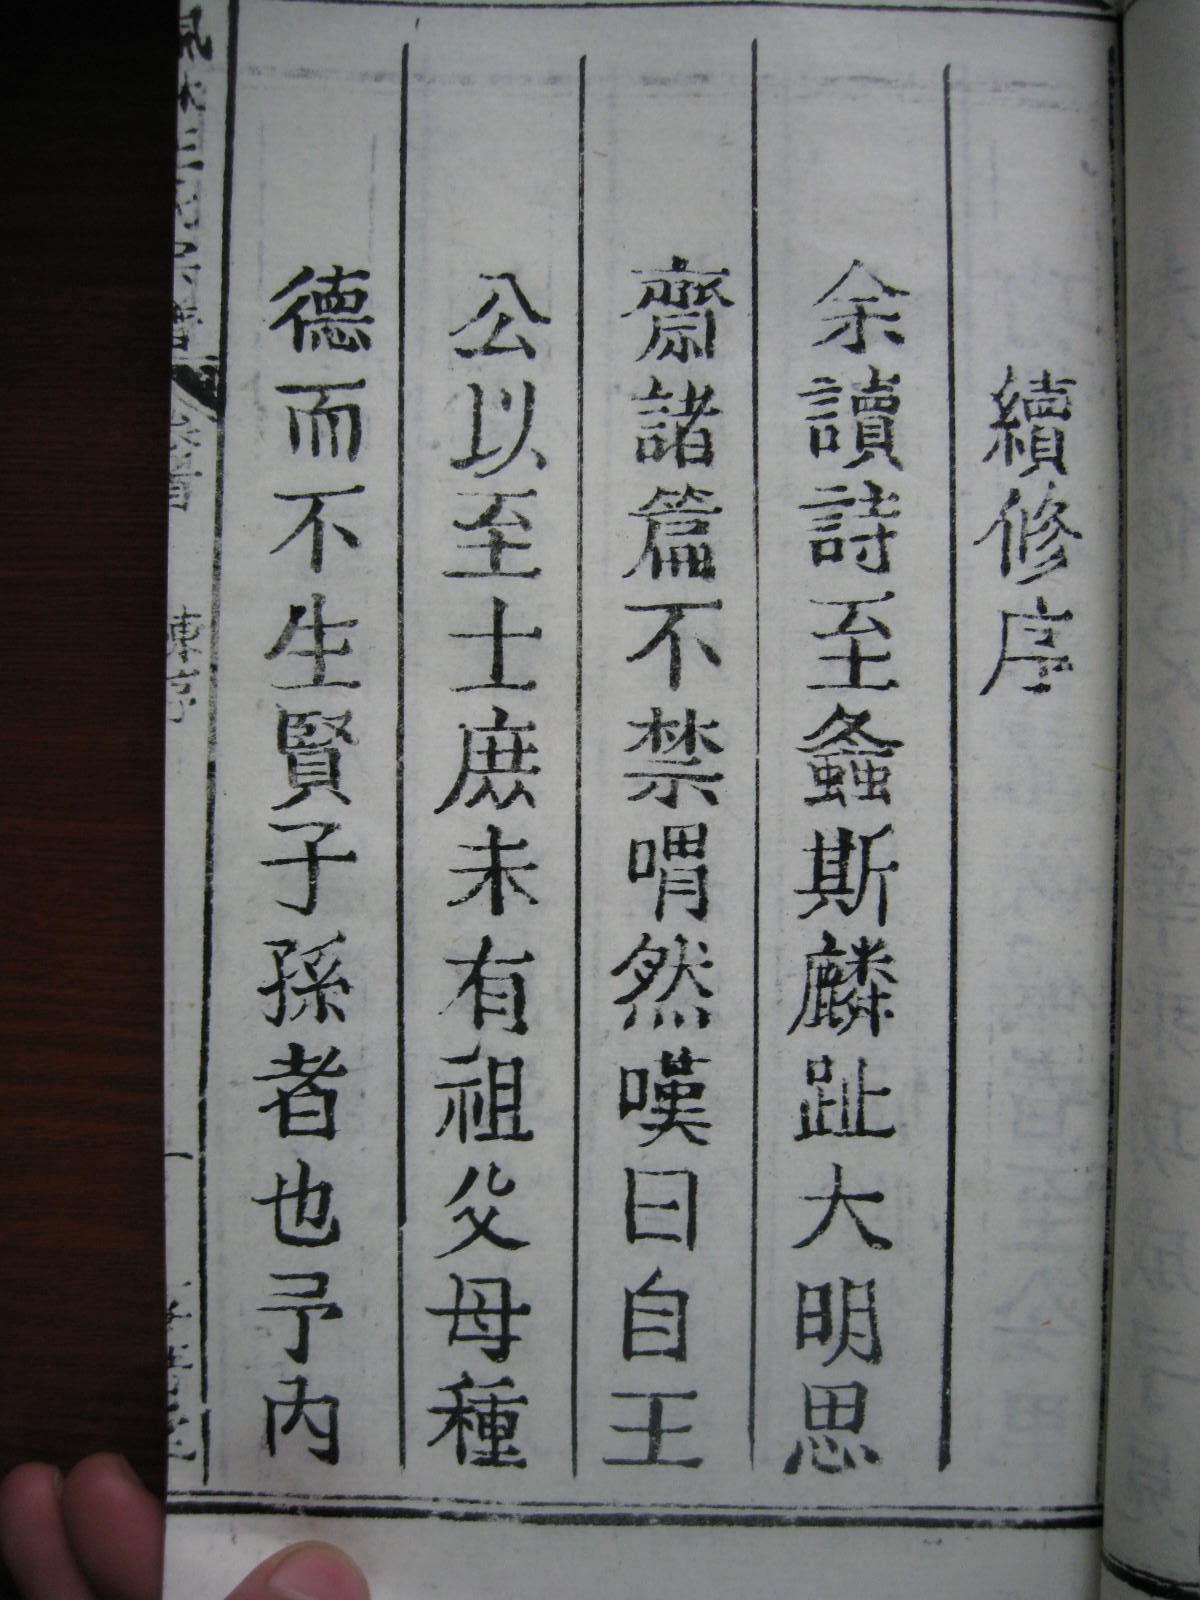 續修序
余讀詩至螽斯麟趾大明思
齋諸篇不禁喟然嘆曰自王
公以至士庶未有祖父母種
德而不生賢子孫者也予內
卷首
陳序
一